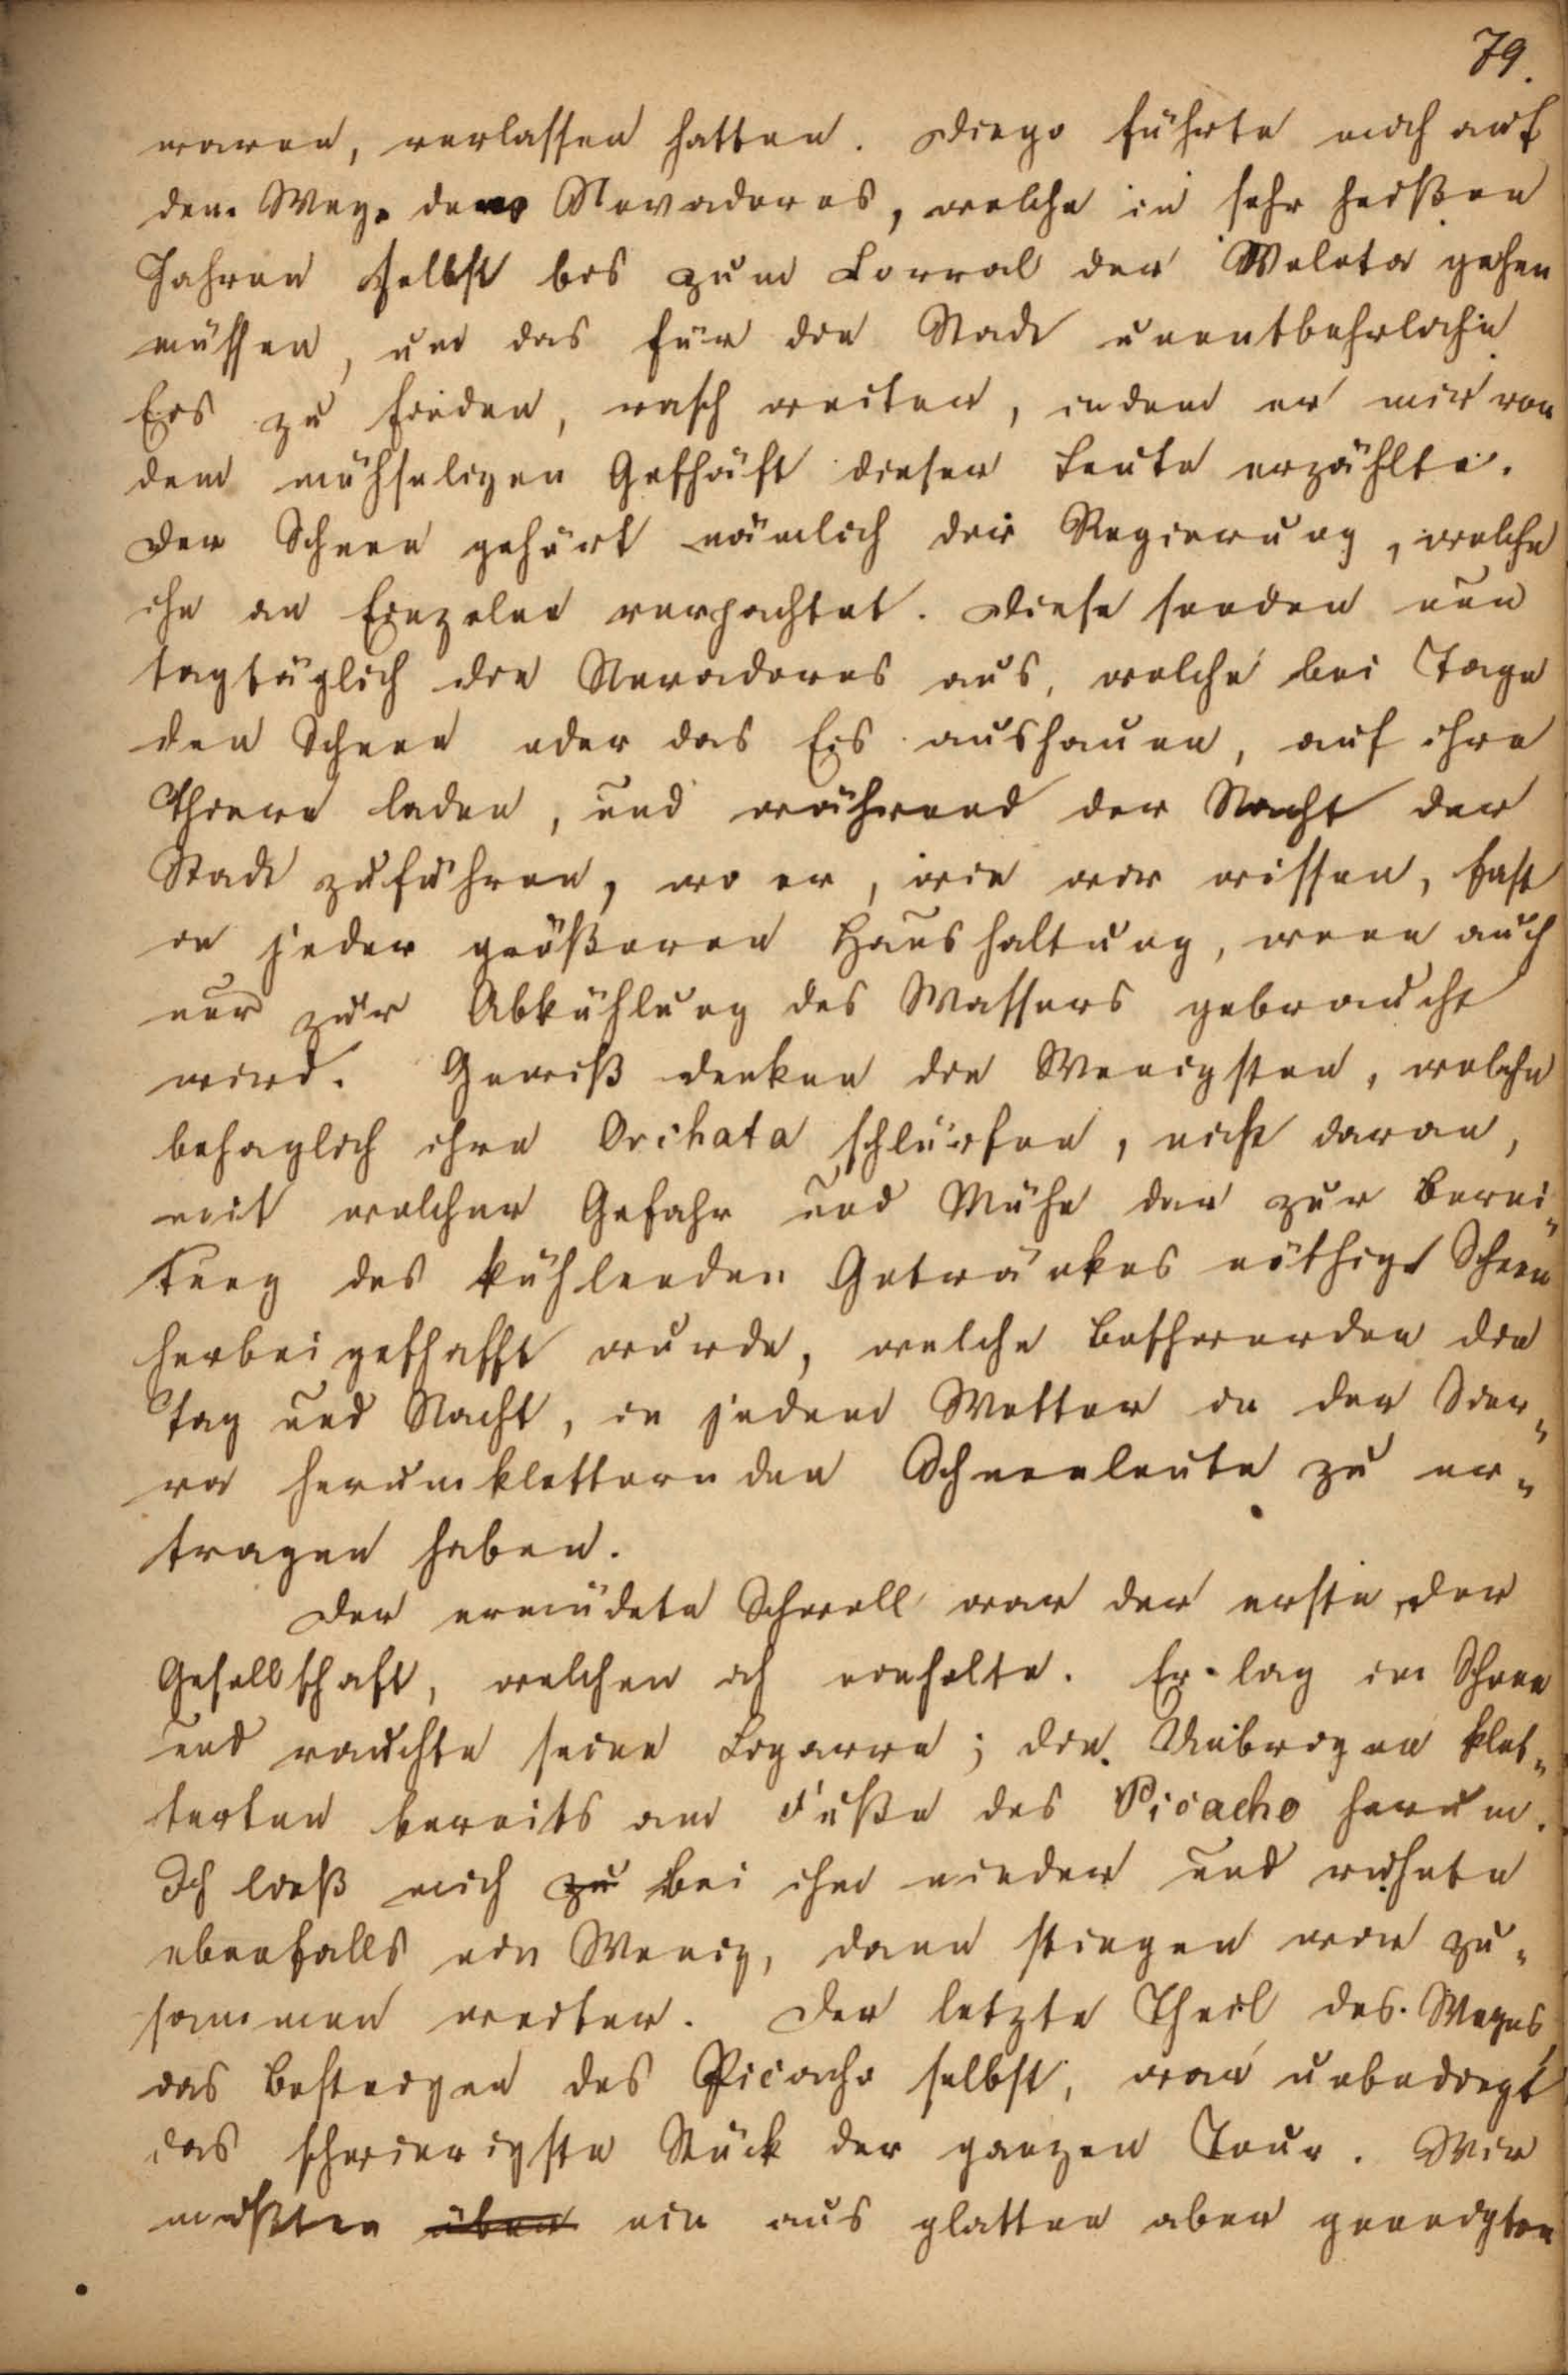 79.
waren, verlassen hatten. Diego führte mich auf
dem Wege der Nevadores, welche in sehr heißen
Jahren selbst bis zum Corral der Veleta gehen
müssen, um das für die Stadt unentbehrliche
Eis zu finden, rasch weiter, indem er mir von
dem mühseligen Geschäft dieser Leute erzählte.
Der Schnee gehört nämlich der Regierung, welche
ihn an Einzelne verpachtet. Diese senden nun
tagtäglich die Nevadores aus, welche bei Tage
den Schnee oder das Eis aushauen, auf ihre
Thiere laden, und während der Nacht der
Stadt zuführen, wo er, wie wir wissen, fast
in jeder größeren Haushaltung, wenn auch
nur zur Abkühlung des Wassers gebraucht
wird. Gewiß denken die Wenigsten, welche
behaglich ihre Orchata schlürfen, nicht daran,
mit welcher Gefahr und Mühe der zur Berei-
tung des kühlenden Getränkes nöthige Schnee
herbeigeschafft wurde, welche Beschwerden die
Tag und Nacht, in jedem Wetter in der Sier-
ra herumkletternden Schneeleute zu er-
tragen haben.
Der ermüdete Schnell war der erste der
Gesellschaft, welchen ich einholte. Er lag im Schnee
und rauchte seine Cigarre; die Uibrigen klet-
terten bereits am Fuße des Picacho herum.
Ich ließ mich zu bei ihm nieder und ruhete
ebenfalls ein Wenig, dann stiegen wir zu-
sammen weiter. Der letzte Theil des Weges,
das Besteigen des Picacho selbst, war unbedingt
das schwierigste Stück der ganzen Tour. Wir
mußten über ein aus glatten aber geneigten